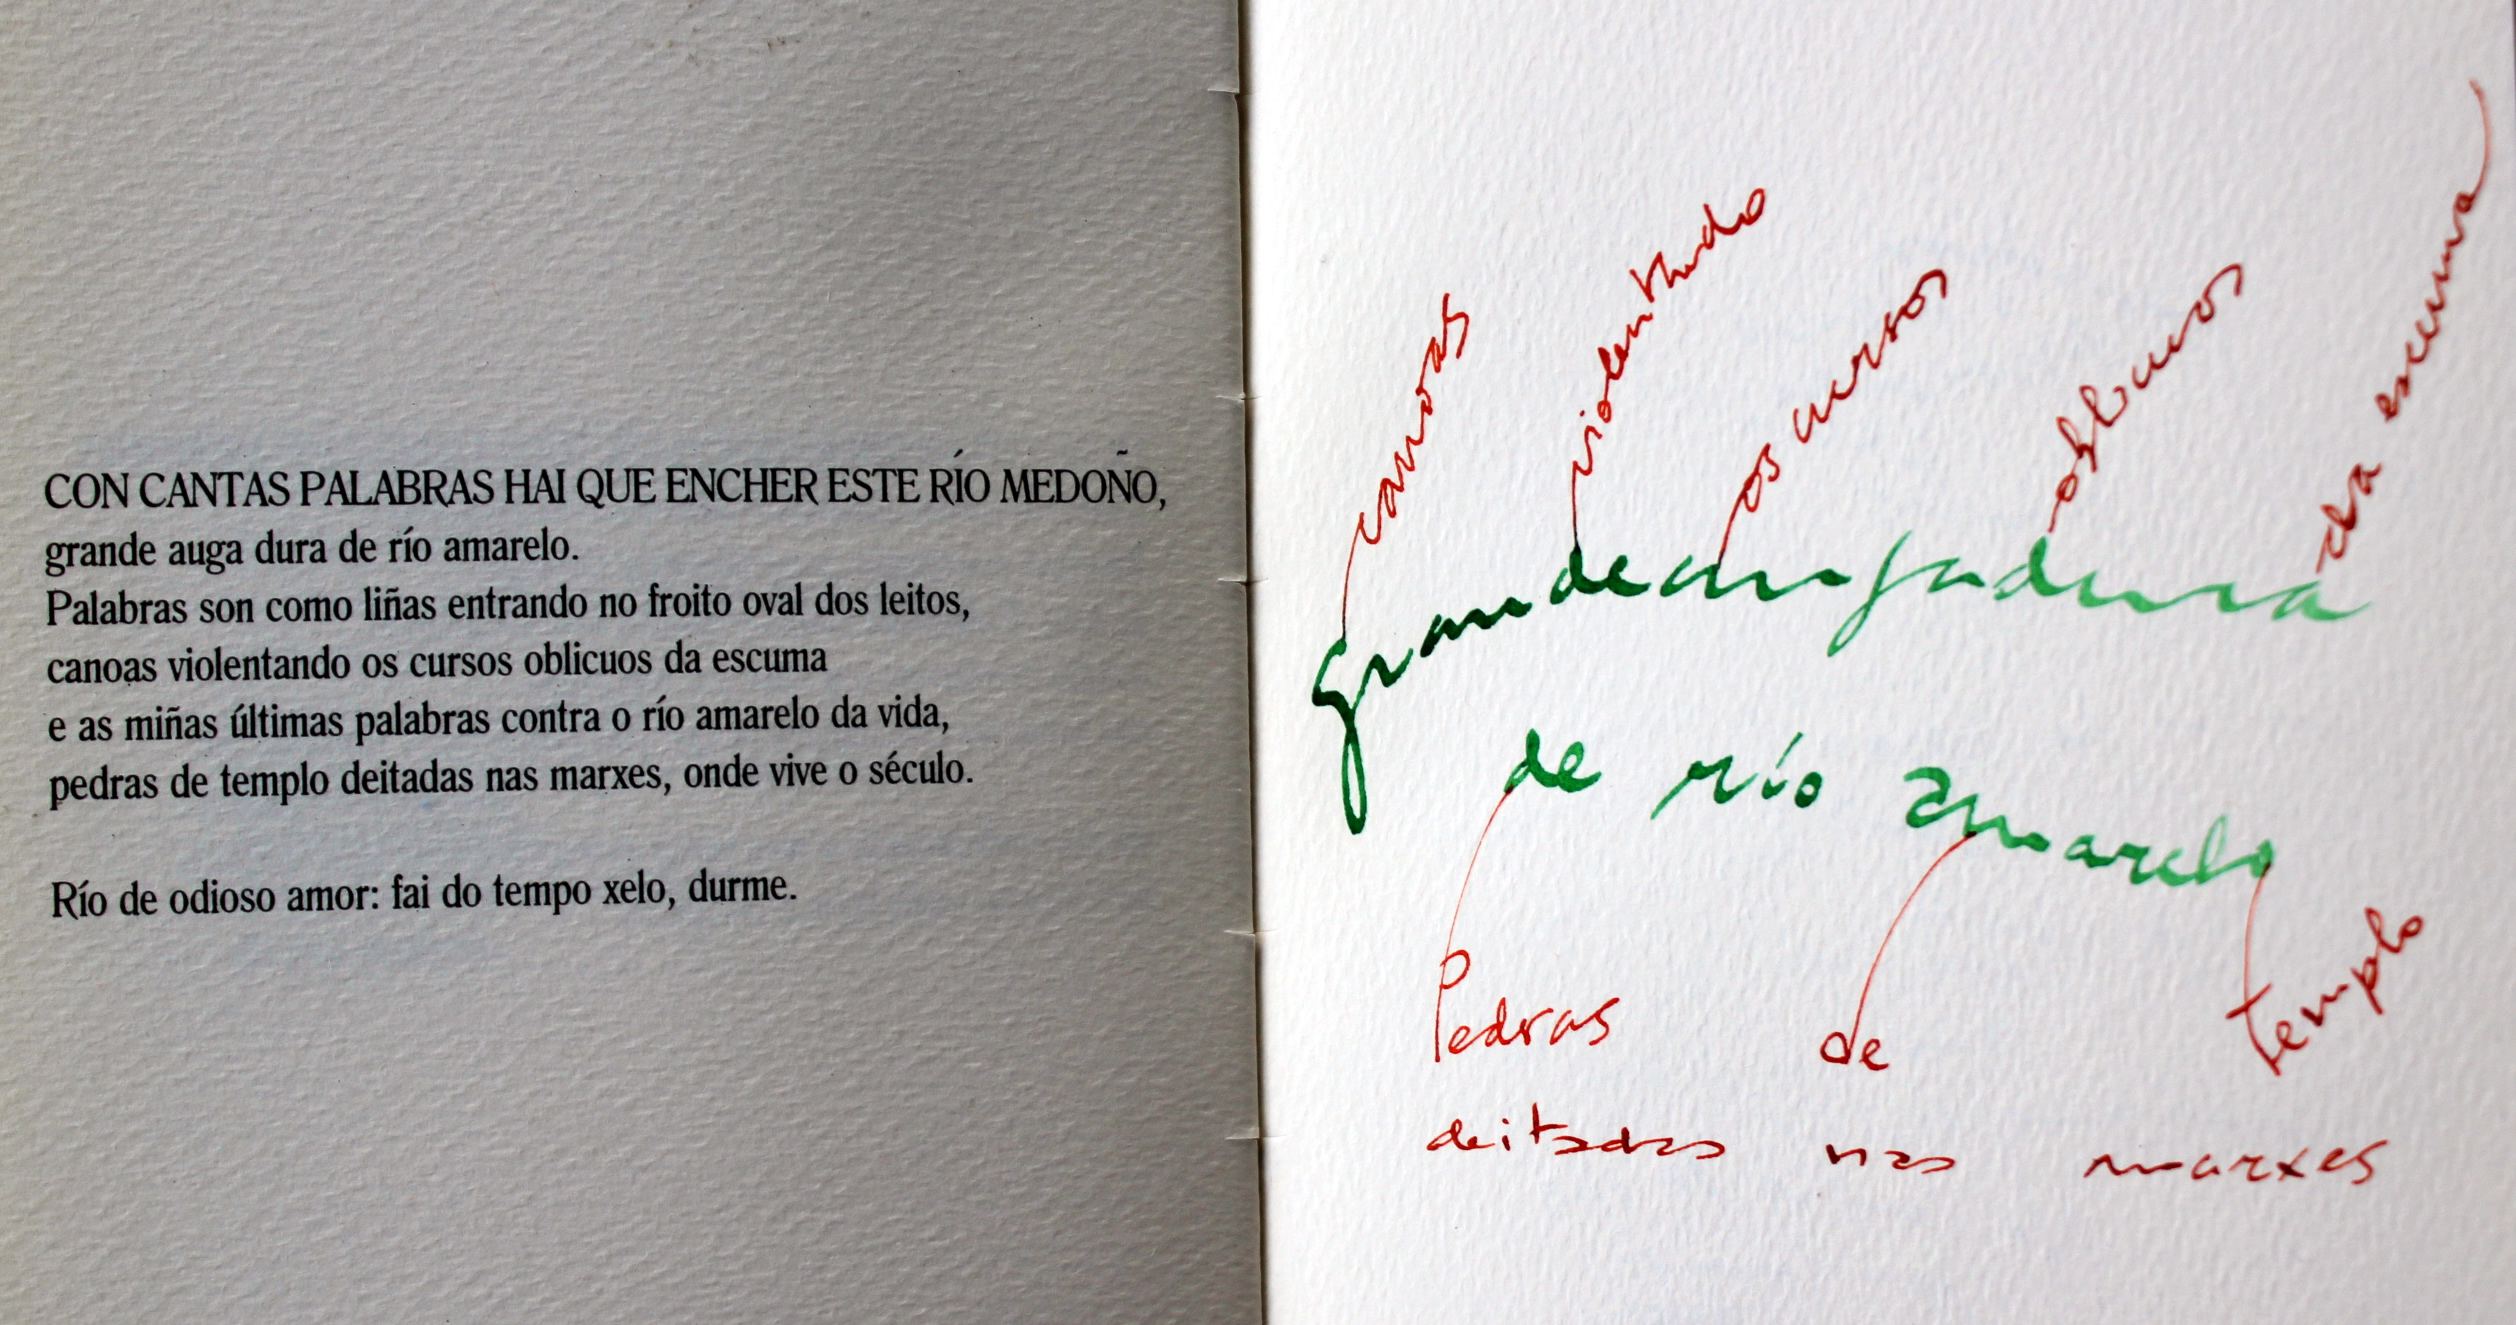 CON CANTAS PALABRAS HAI QUE ENCHER ESTE RÍO MEDOÑO,
grande auga dura de río amarelo.
Palabras son como liñas entrando no froito oval dos leitos,
canoas violentando os cursos oblicuos da escuma
e as miñas últimas palabras contra o río amarelo da vida,
pedras de templo deitadas nas marxes, onde vive o século.
Río de odioso amor: fai do tempo xelo, durme.
canoas
violentando
os cursos
oblicuos
da escuma
grande auga dura
de río amarelo
Pedras de templo
deitadas nas marxes